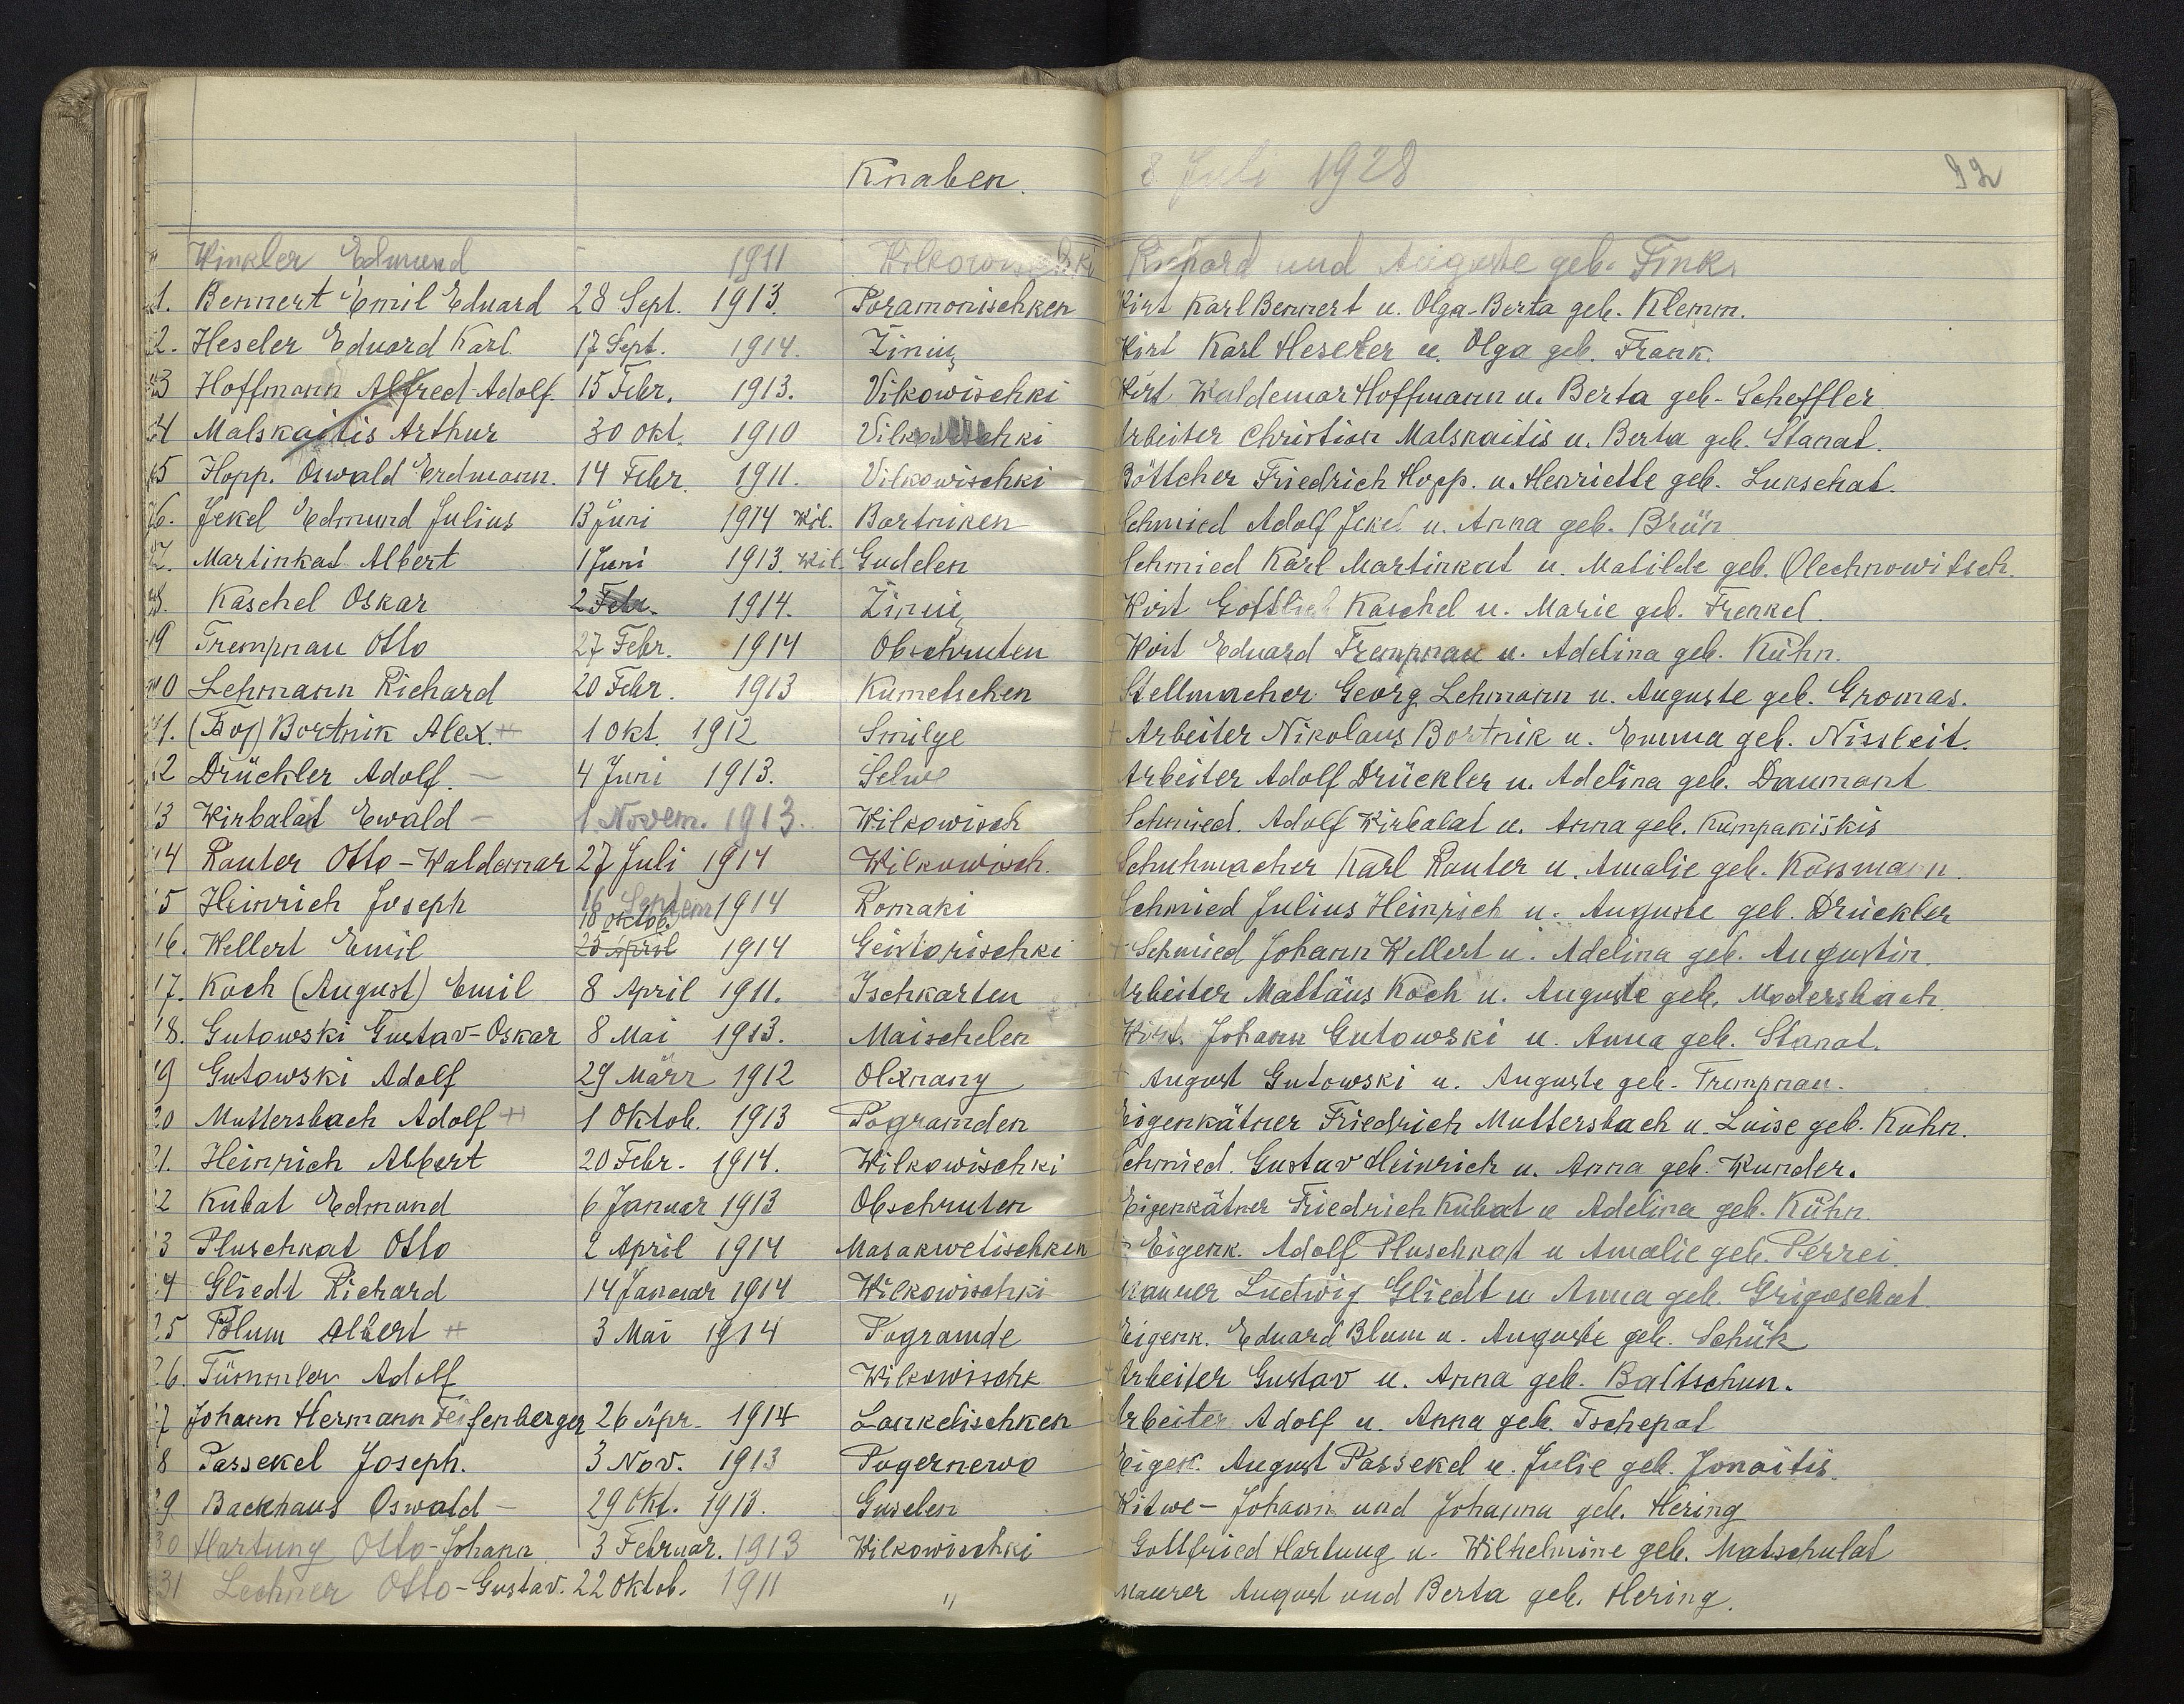 Knaben. 8 Juli 1928 92
Winkler Edmund - 1911 Wilkowischki Richard und Auguste geb. Fink.
1. Bennert Emil Eduard 28 Sept. 1913. Poramonischken Wirt Karl Bennert u. Olga-Berta geb. Klemm.
2. Heseler Eduard Karl. 17 Sept. 1914. Žinių Wirt Karl Heseler u. Olga geb. Frank.
3 Hoffmann Alfred-Adolf. 15 Febr. 1913. Vilkowischki Wirt Waldemar Hoffmann u. Berta geb. Scheffler
4 Malskaitis Arthur 30 Okt. 1910 Vilkowischki Arbeiter Christian Malskaitis u. Berta geb. Stanat.
5 Hopp. Oswald Erdmann. 14 Febr. 1911. Vilkowischki Böttcher Friedrich Hopp. u. Henriette geb. Lukschat.
6. Jekel Edmund Julius 13 Juni 1914 Wil. Bartniken Schmied Adolf Jekel u. Anna geb. Brün
7. Martinkat Albert 1 Juni 1913. Wil. Gudelen Schmied Karl Martinkat u. Matilde geb. Olechnowitsch.
8. Kaschel Oskar 2 Febr. 1914. Žinių Wirt Gottlieb Kaschel u. Marie geb. Frenkel.
9 Trempnau Otto 27 Febr. 1914 Obschruten Wirt Eduard Trempnau u. Adelina geb. Kühn.
10 Lehmann Richard 20 Febr. 1913 Kumetschen Stellmacher Georg Lehmann u. Auguste geb. Gromas.
11. Bortnik Alex. 1 Okt. 1912 Smilge + Arbeiter Nikolaus Bortnik u. Emma geb. Nissleit.
12 Drückler Adolf. - 4 Juni 1913. Selwe Arbeiter Adolf Drückler u. Adelina geb. Daumont
13 Wirbalat Ewald - 1. Novem. 1913. Wilkowisch Schmied. Adolf Wirbalat u. Anna geb. Kumpakiskis
14 Rauter Otto-Waldemar 27 Juli 1914 Wilkowisch. Schuhmacher Karl Rauter u. Amalie geb. Kossmann.
15 Heinrich Joseph 16 Septem 1914 Romaki Schmied Julius Heinrich u. Auguste geb. Drückler
16. Wellert Emil 18 Oktob. 25 April 1914 Geistarischki + Schmied Johann Wellert u. Adelina geb. Augustin.
17. Koch (August) Emil 8 April 1911. Ischkarten Arbeiter Mattäus Koch u. Auguste geb. Modersbach.
18. Gutowski Gustav-Oskar 8 Mai 1913. Maischelen Wirt. Johann Gutowski u. Anna geb. Stanat.
19 Gutowski Adolf 29 März 1912 Olxnany + August Gutowski u. Auguste geb. Trempnau.
20 Muttersbach Adolf 1 Oktob. 1913 Pogramden Eigenkätner Friedrich Muttersbach u. Luise geb. Kühn.
21. Heinrich Albert 20 Febr. 1914. Wilkowischki Schmied. Gustav Heinrich u. Anna geb. Wunder.
22 Kubat Edmund 6 Januar 1913 Obschruten Eigenkätner Friedrich Kubat u Adelina geb. Kühn.
23 Pluschkat Otto 2 April 1914 Masakwetischken + Eigenk. Adolf Pluschkat u Amalie geb. Perrei.
24 Gliedt Richard 14 Januar 1914 Wilkowischki Maurer Ludwig Gliedt u Anna geb. Grigoschat
25 Blum Albert 3 Mai 1914 Pogramde Eigenk. Eduard Blum u. Auguste geb. Schük
26. Tümmler Adolf Wilkowischk Arbeiter Gustav u. Anna geb. Baltschun.
27 Johann Hermann Feifenberger 26 Apr. 1914 Lankelischken Arbeiter Adolf u. Anna geb. Tschepat
28 Passekel Joseph. 3 Nov. 1913 Pogernewo Eigek. August Passekel u. Julie geb. Jonaitis.
29. Backhaus Oswald - 29 Okt. 1913. Guselen Witwe - Johann und Johanna geb. Hering
30 Hartung Otto-Johann 3 Februar. 1913 Wilkowischki Gottfried Hartung u. Wilhelmine geb. Matschulat
31 Lechner Otto-Gustav. 22 Oktob. 1911 " Maurer August und Berta geb. Hering.